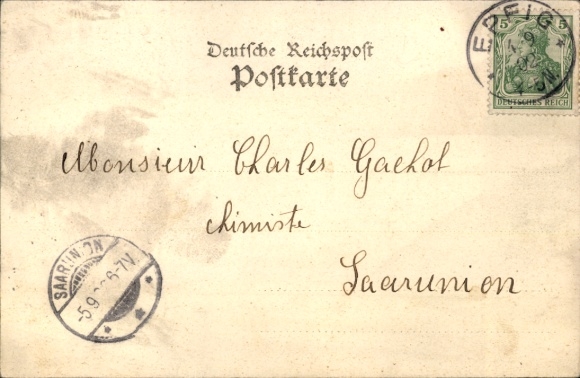 Deutsche Reichspost
Postkarte
5 5
DEUTSCHES REICH
EPFIG
Monsieur Charles Gachot
chimiste
Saarunion
SAARUNION
-5.9. 6-7V.